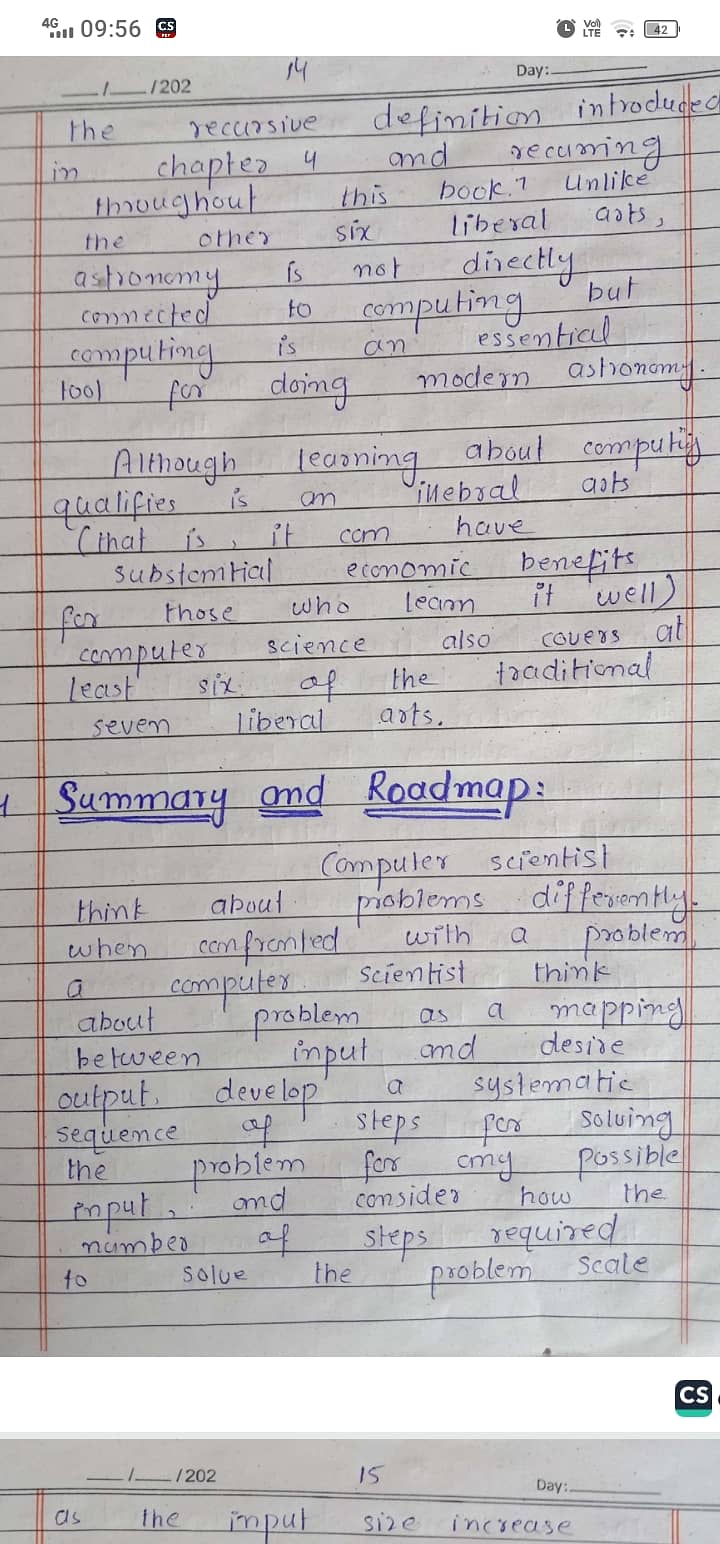 4G 09:56 CS PDF Vo)) LTE 42
14
__/__/202 Day:
the recursive definition introduced
in chapter 4 and recurring
throughout this book.1 Unlike
the other six liberal arts,
astronomy is not directly
connected to computing but
computing is an essential
tool for doing modern astronomy.
Although learning about computing
qualifies is an illebral arts
(that is, it can have
substantial economic benefits
for those who learn it well)
computer science also covers at
least six of the traditional
seven liberal arts.
Summary and Roadmap:
Computer scientist
think about problems differently.
when confronted with a problem,
a computer scientist think
about problem as a mapping
between input and desire
output, develop a systematic
sequence of steps for solving
the problem for any possible
input, and consider how the
number of steps required
to solve the problem scale
CS
__/__/202 15 Day:
as the input size increase